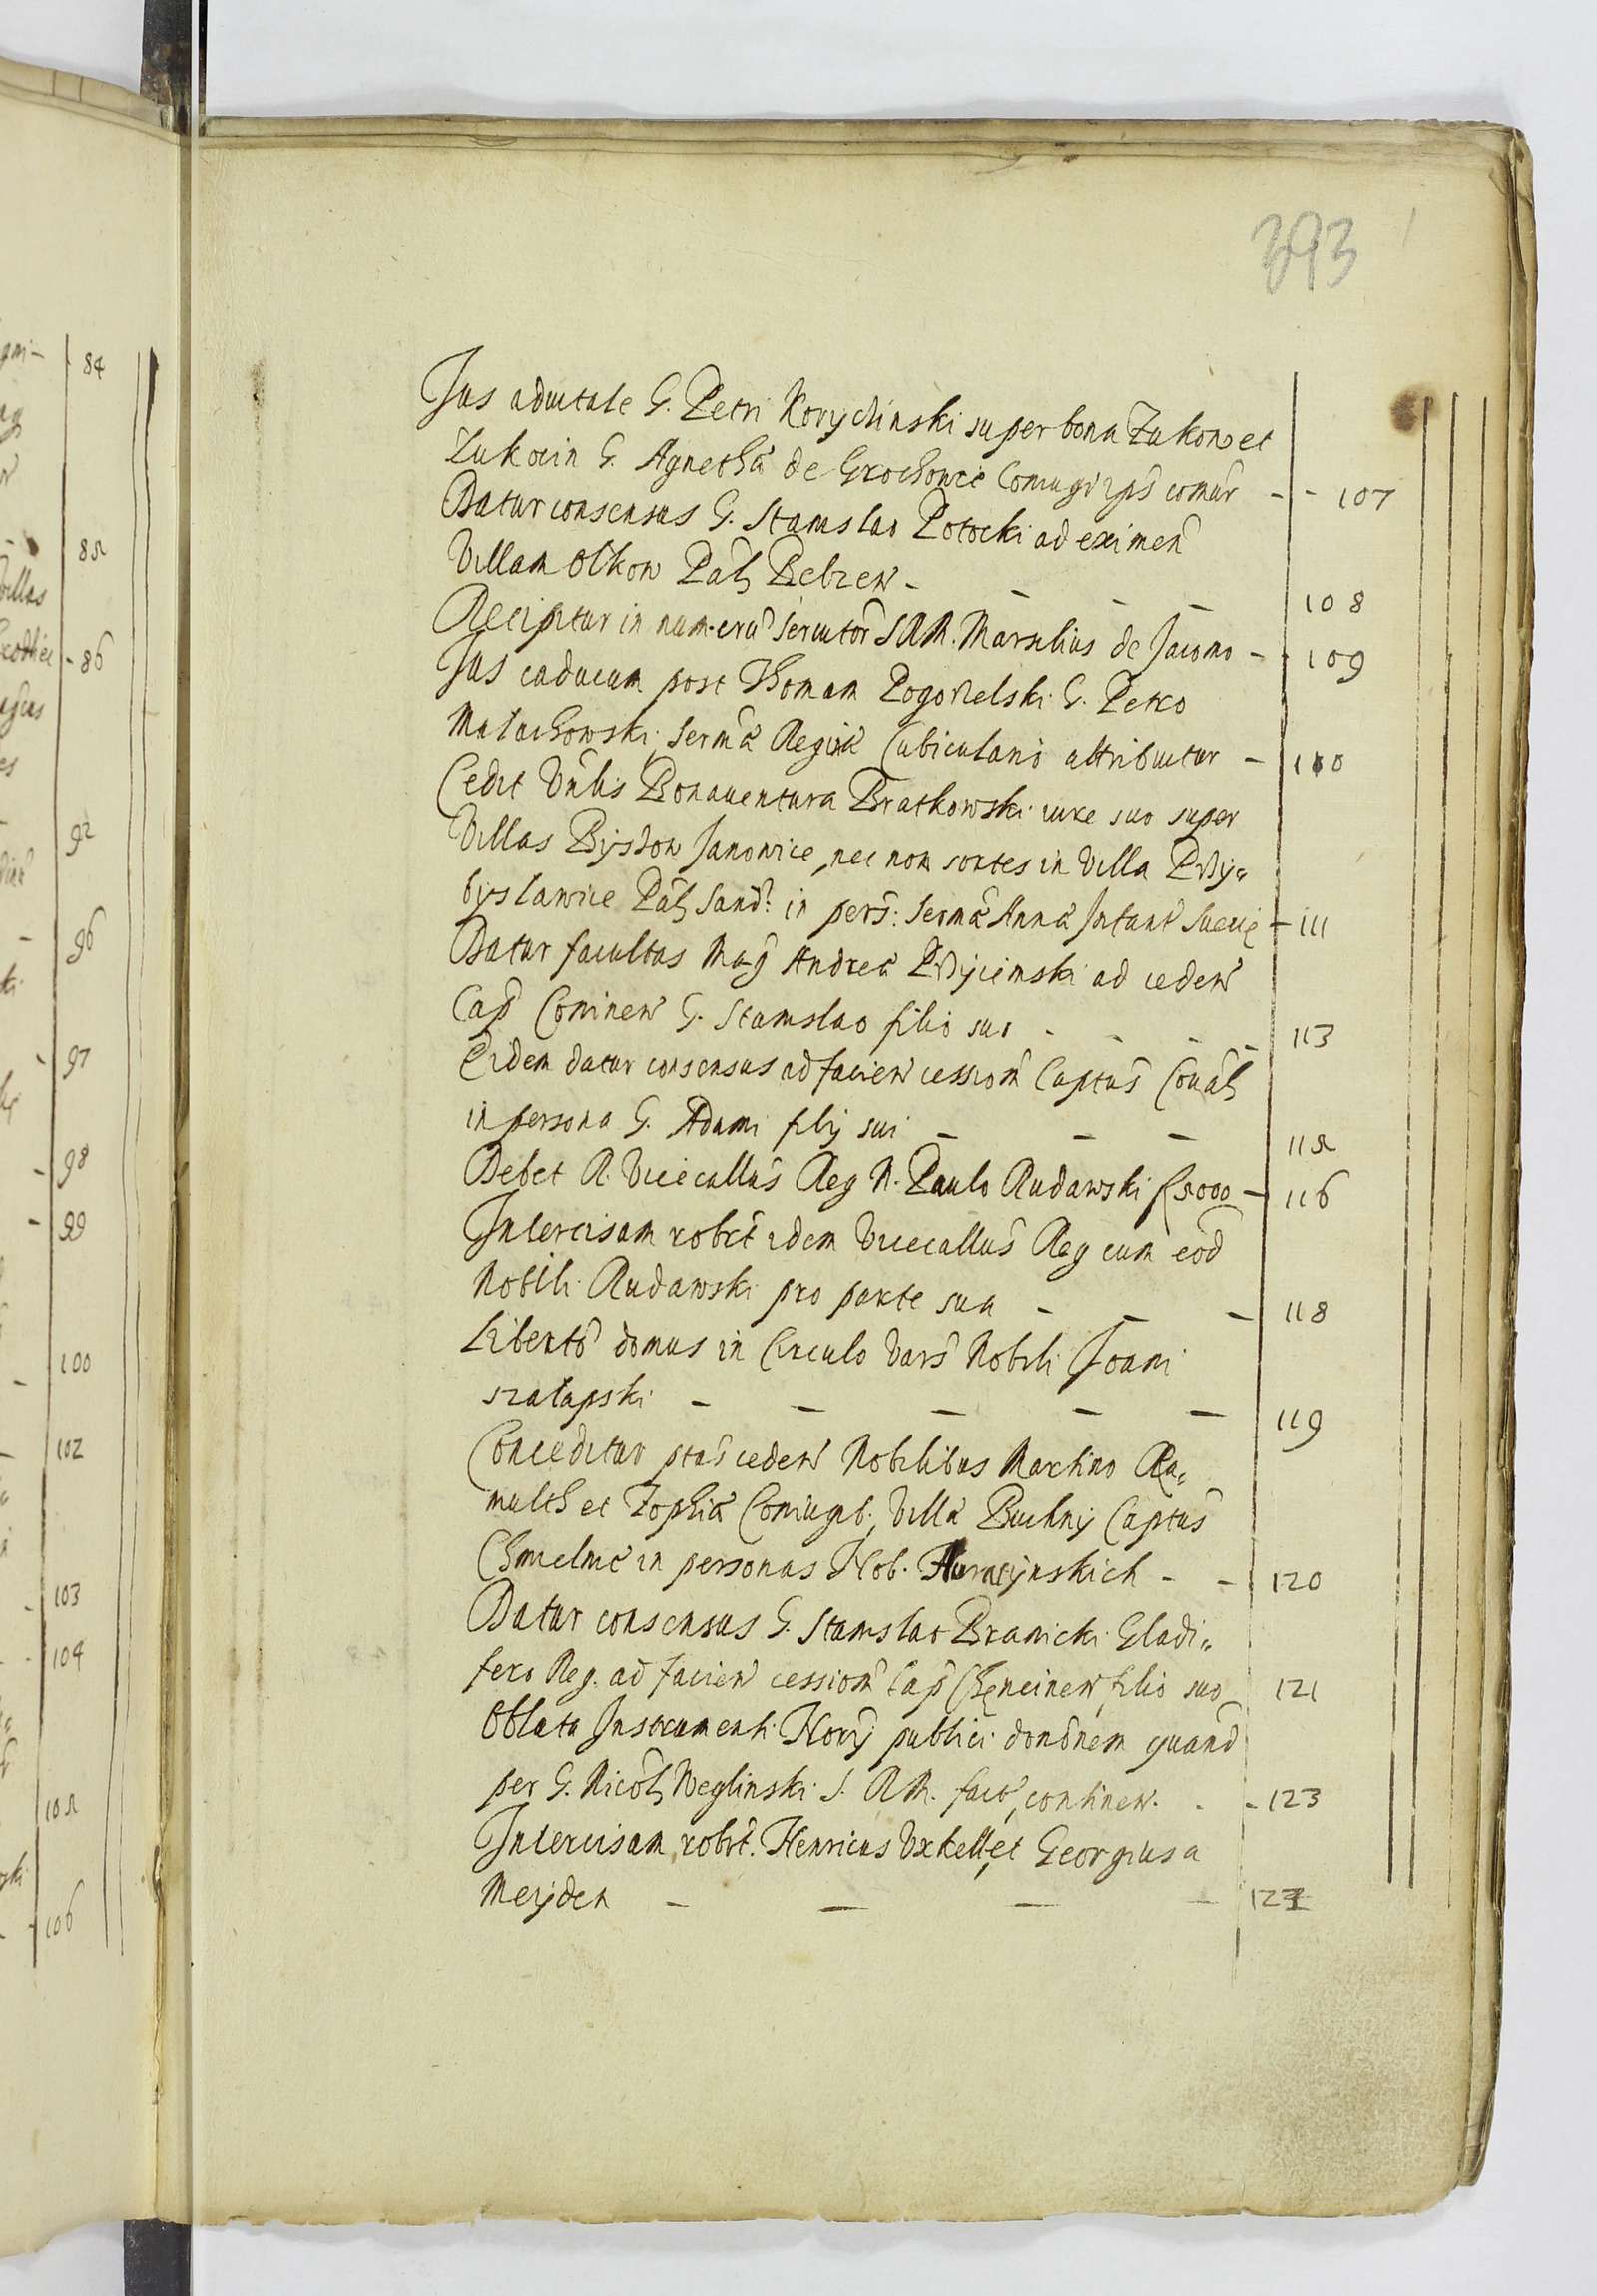 393
Jus aduitale G. Petri Koryciński super bona Zukow et
Zukocin G. Agnethã de Grochowce Coniugi ips comũr - - 107
Datur consensus G. Stanislao Potocki ad eximeñ
Villam Olkow Palĩ Belzeñ - - - - 108
Recipitur in numerũ Seruitor̃ S R M. Marsilius de Jacomo - - 109
Jus caducum post Thomam Pogorzelski G. Petro
Malachowski Sermã Reginã Cubiculario attribuitur - 110
Cedit Vrĩlis Bonauentura Bratkowski iure suo super
Villas Bystow Janowice, nec non sortes in Villa Przy„
byslawice Palĩ Sand: in pers̃: Sermã Annã Infanĩ Suecię - 111
Datur facultas Mag̃ Andreã Przyiemski ad cedeñ
Cap̃ Conineñ G. Stanislao filio suo - - - - 113
Eidem datur consensus ad facieñ cessiom̃ Captũs Coualĩ
in persona G. Adami filij sui - - - 115
Debet R. Vicecallũs Reg N. Paulo Rudawski f 5000 - 116
Intercisam robrt̃ idem Vicecallũs Reg cum eod̃
Nobili Rudawski pro parte sua - - - 118
Libertõ domus in Circulo Vars̃ Nobili Joani
Szalapski - - - - - 119
Conceditur ptas̃ cedeñ Nobilibus Martino Ra„
multh et Zophiã Coniugib., Villã Buchny Captũs
Chmielnĩc in personas Nob. Huracynskich - - 120
Datur consensus G. Stanislao Branicki Gladi„
fero Reg. ad facieñ cessiom̃ Cap̃ Chęncineñ, filio suo 121
Oblata Instrumenti Norij publici donõnem quand̃
per G. Nicolĩ Weglinski S. R M. factã, contineñ. - - 123
Intercisam, robrt̃. Henricus Vxkell, et Georgius a
Meyden - - - - 124
84
85
86
92
96
97
98
99
100
102
103
104
105
106